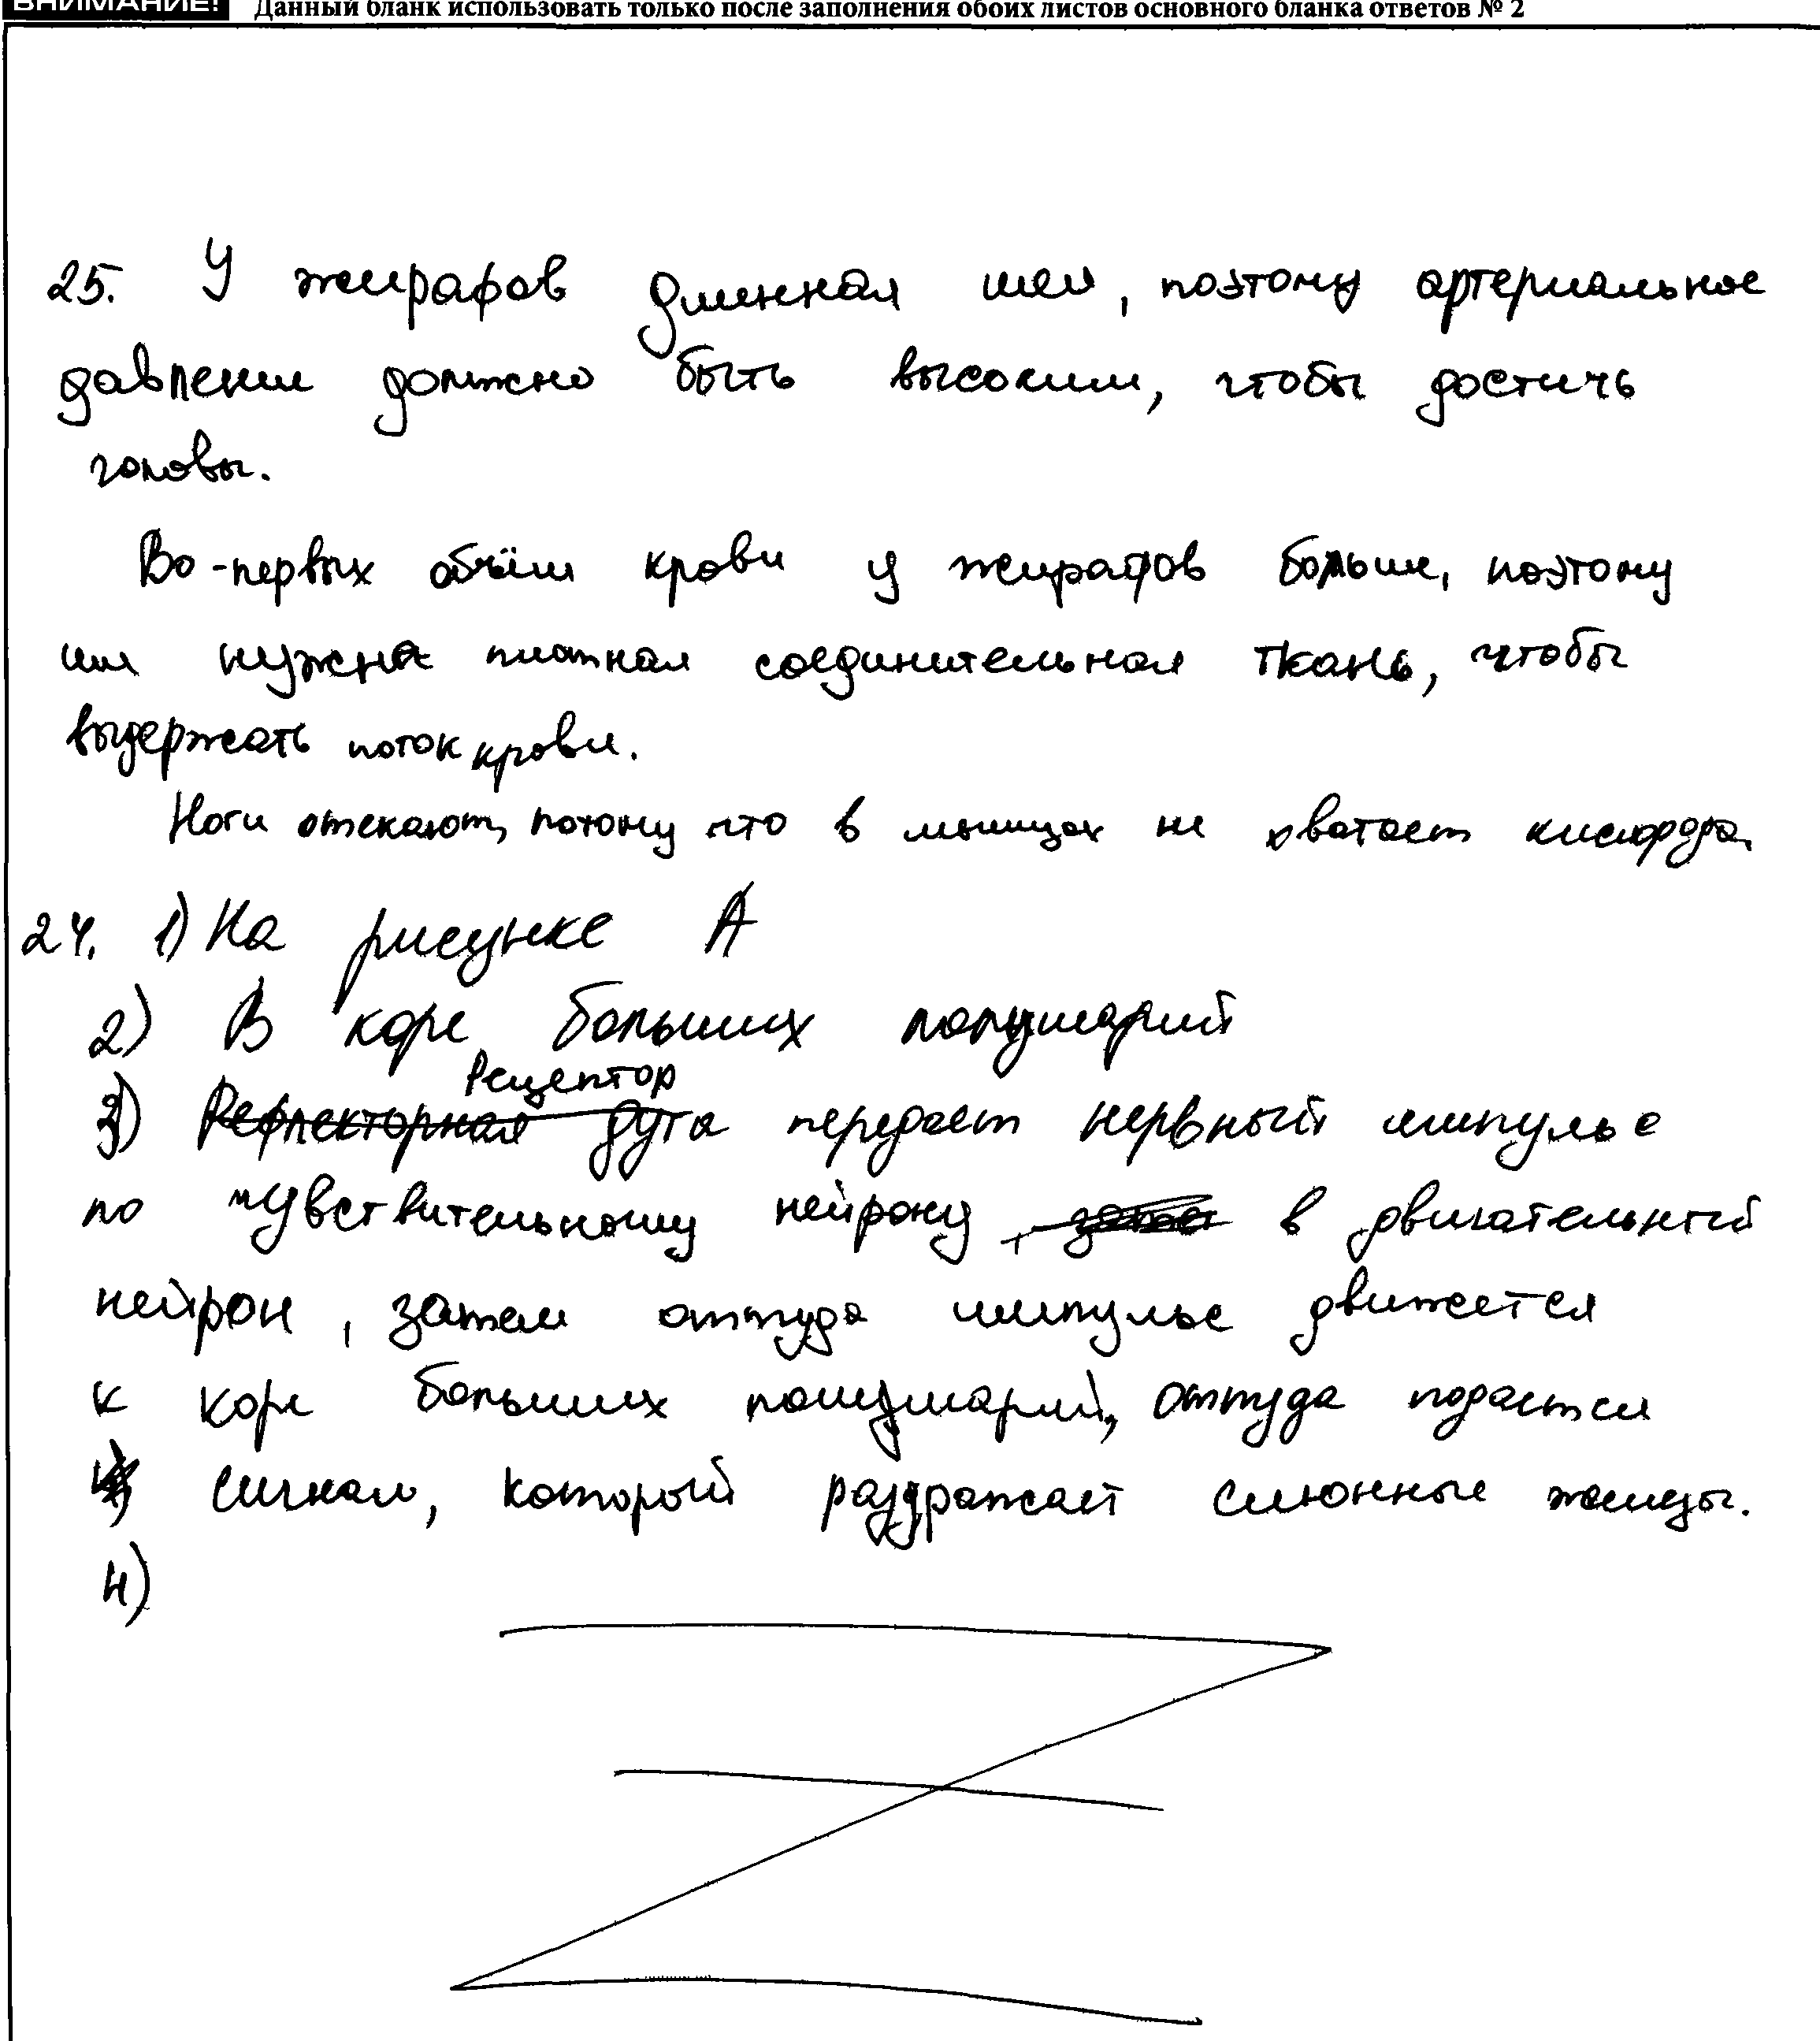 ВНИМАНИЕ! Данный бланк использовать только после заполнения обоих листов основного бланка ответов № 2
25. У жирафов длинная шея, поэтому артериальное
давление должно быть высоким, чтобы достичь
головы.
Во-первых объём крови у жирафов больше, поэтому
им нужна плотная соединительная ткань, чтобы
выдержать поток крови.
Ноги отекают, потому что в мышцах не хватает кислорода
24. 1) На рисунке А
2) В коре больших полушарий
Рецептор
3) Рефлекторная дуга передает нервный импульс
по чувствительному нейрону, в двигательный
нейрон, затем оттуда импульс движется
к коре больших полушарий, оттуда подается
сигнал, который раздражает слюнные железы.
4)